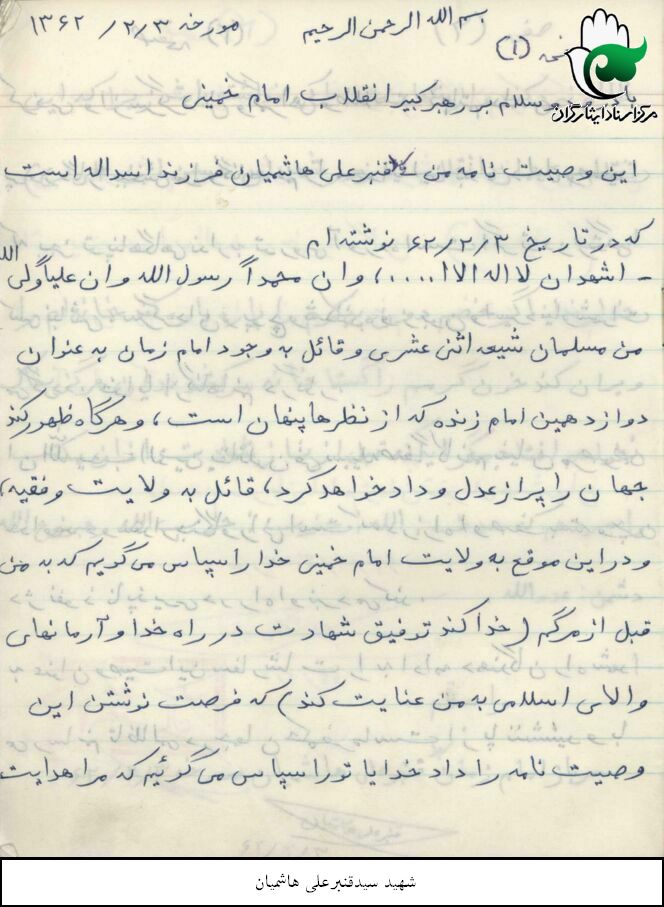 بسم الله الرحمن الرحیم مورخه ۱۳۶۲/۲/۳
(۱)
مرکز اسناد ایثارگران
وسلام بر رهبر کبیر انقلاب امام خمینی
این وصیت نامه من قنبر علی هاشمیان فرزند اسداله است
که در تاریخ ۶۲/۲/۳ نوشته ام
- اشهد ان لا اله الا ا.....، وان محمداً رسول الله وان علیاً ولی الله
من مسلمان شیعه اثنی عشری و قائل به وجود امام زمان به عنوان
دوازدهمین امام زنده که از نظرها پنهان است، و هرگاه ظهور کند
جهان را پر از عدل و داد خواهد کرد، قائل به ولایت وفقیه،
و در این موقع به ولایت امام خمینی خدا را سپاس می گویم که به من
قبل از مرگم (خدا کند توفیق شهادت در راه خدا و آرمانهای
والای اسلامی به من عنایت کند) که فرصت نوشتن این
وصیت نامه را داد خدایا تو را سپاس می گوئیم که مرا هدایت
شهید سیدقنبرعلی هاشمیان